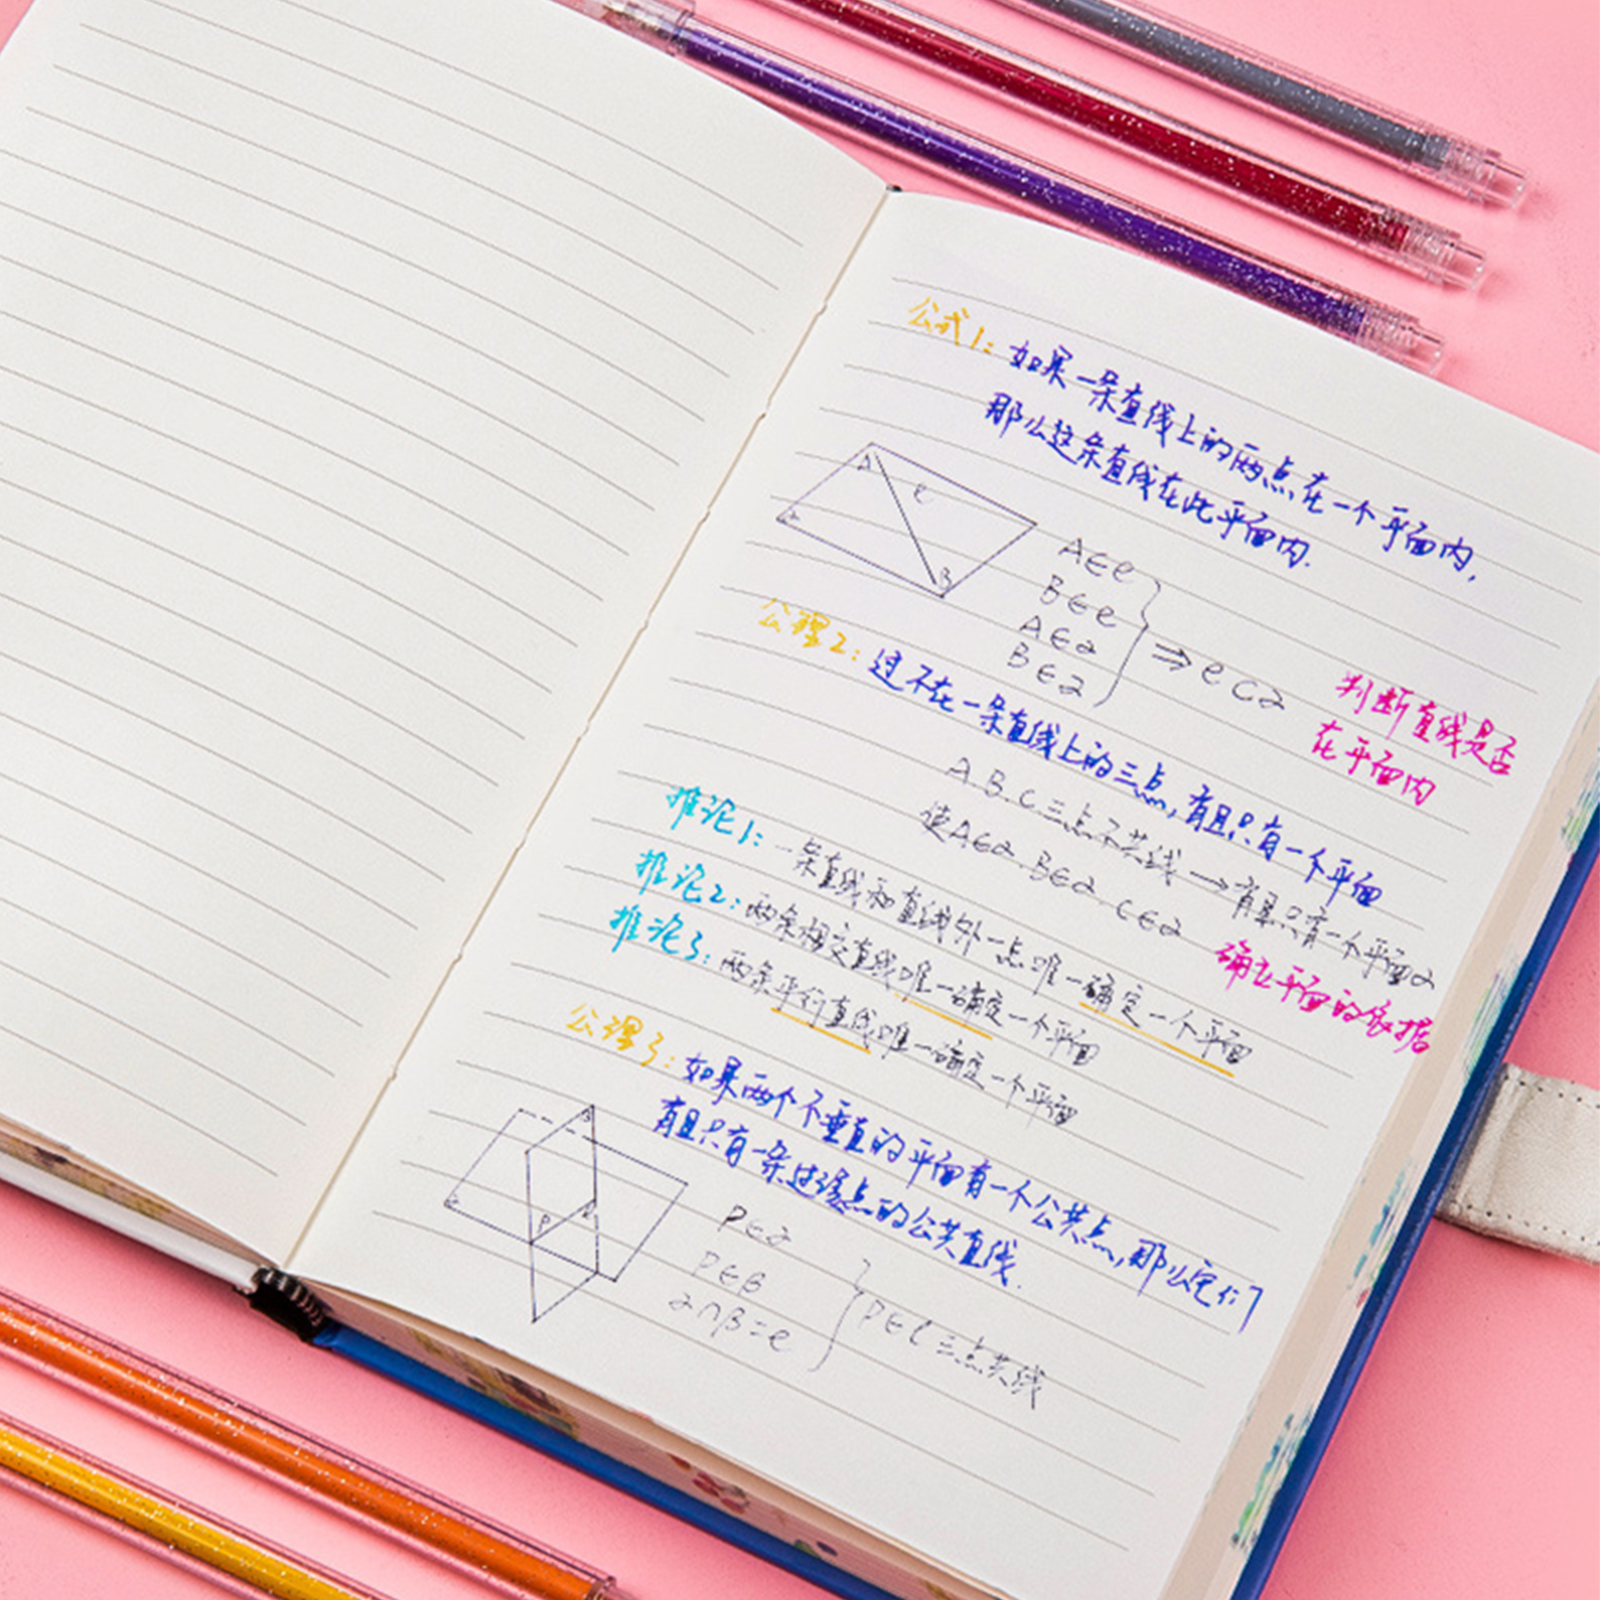 公式1: 如果一条直线上的两点在一个平面内,
那么这条直线在此平面内.
A
e
2
B
A∈e
B∈e
A∈2
B∈2
⇒ e⊂2
判断直线是否
在平面内
公理2: 过不在一条直线上的三点,有且只有一个平面
A.B.C三点不共线→有且只有一个平面2
使A∈2.B∈2.C∈2
确立平面的依据
推论1: 一条直线和直线外一点唯一确定一个平面
推论2: 两条相交直线唯一确定一个平面
推论3: 两条平行直线唯一确定一个平面
公理3: 如果两个不垂直的平面有一个公共点,那么它们
有且只有一条过该点的公共直线.
P
P∈2
P∈β
2∩β=e
P∈l 三点共线